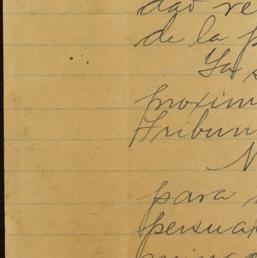 dad re
de la p
Ya s
proxim
Tribun
N
para
persua